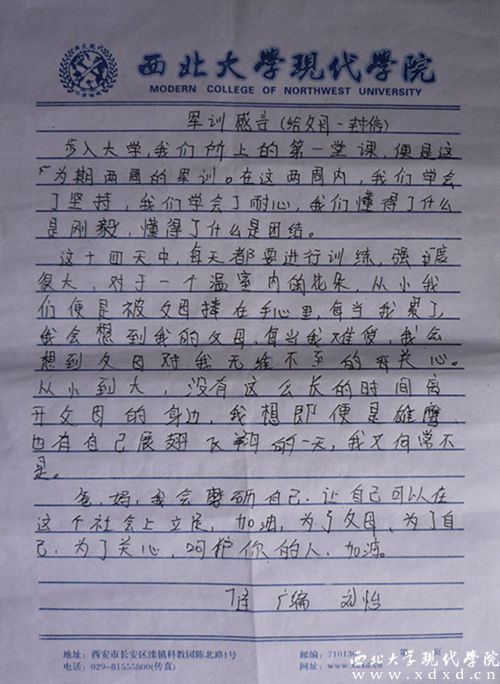 西北大学现代学院
MODERN COLLEGE OF NORTHWEST UNIVERSITY
军训感言(给父母一封信)
步入大学,我们所上的第一堂课,便是这
为期两周的军训。在这两周内,我们学会
了坚持,我们学会了耐心,我们懂得了什么
是刚毅,懂得了什么是团结。
这十四天中,每天都要进行训练,强度
很大,对于一个温室内的花朵,从小我
们便是被父母捧在手心里,每当我累了,
我会想到我的父母,每当我难受,我会
想到父母对我无维不至的关心。
从小到大,没有这么长的时间离
开父母的身边,我想即便是雄鹰
也有自己展翅飞翔的一天,我又何常不
是。
爸妈,我会磨砺自己,让自己可以在
这个社会上立足,加油,为了父母、为了自
己,为了关心,呵护你的人,加油。
广编 刘怡
地址:西安市长安区滦镇科教园陈北路1号
电话:029-81555800(传真)
邮编:71013
网址:www.x
第 页
西北大学现代学院
www.xdxd.cn